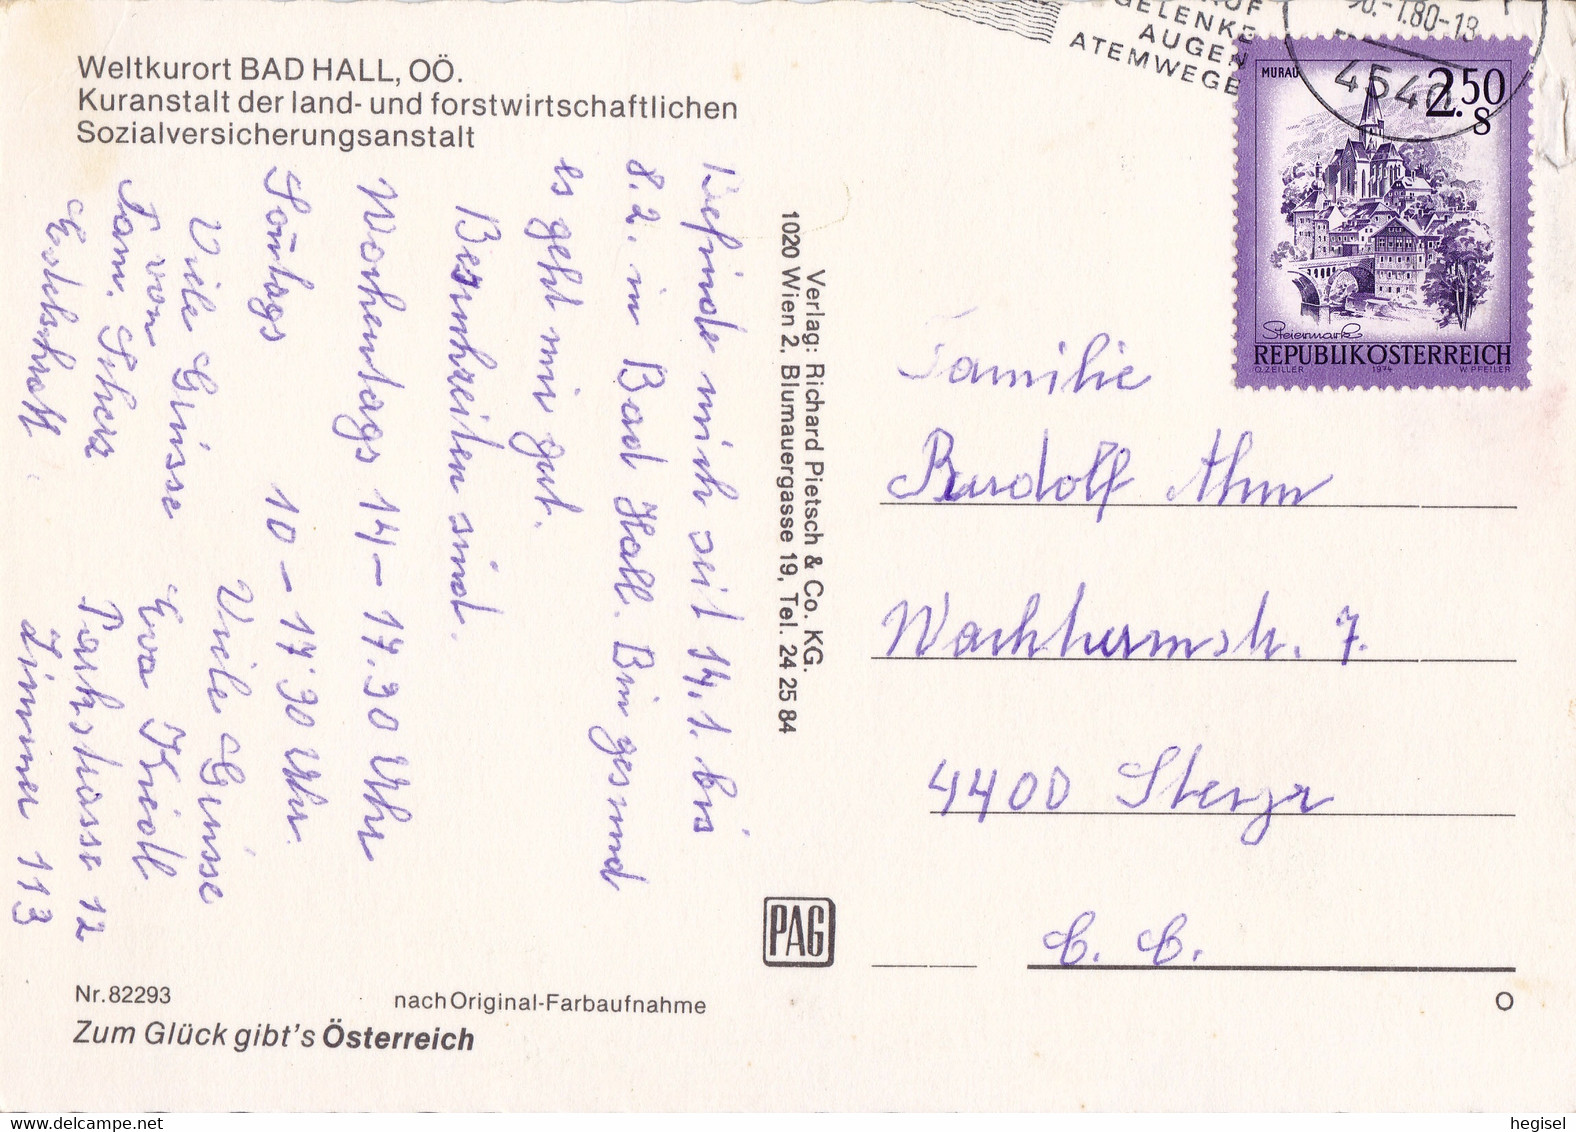 Weltkurort BAD HALL, OÖ.
Kuranstalt der land- und forstwirtschaftlichen
Sozialversicherungsanstalt
Befinde mich seit 14.1. bis
8.2. in Bad Hall. Bin gesund
es geht mir gut.
Besuchzeiten sind.
Wochentags 14-17.30 Uhr
Sontags 10-17.30 Uhr.
Viele Grüsse
von
Fam.
Viele Grüsse
Eva
Parkstrasse 12
Zimmer 113
Verlag: Richard Pietsch & Co. KG.
1020 Wien 2, Blumauergasse 19, Tel. 24 25 84
PAG
GELENKE
AUGEN
ATEMWEGE
80-18
4540
MURAU
2.50
S
Steiermark
REPUBLIK ÖSTERREICH
O. ZEILLER 1974 W. PFEILER
Familie
Rudolf Ahm
7.
4400 Steyr
Nr. 82293
nach Original-Farbaufnahme
Zum Glück gibt's Österreich
O